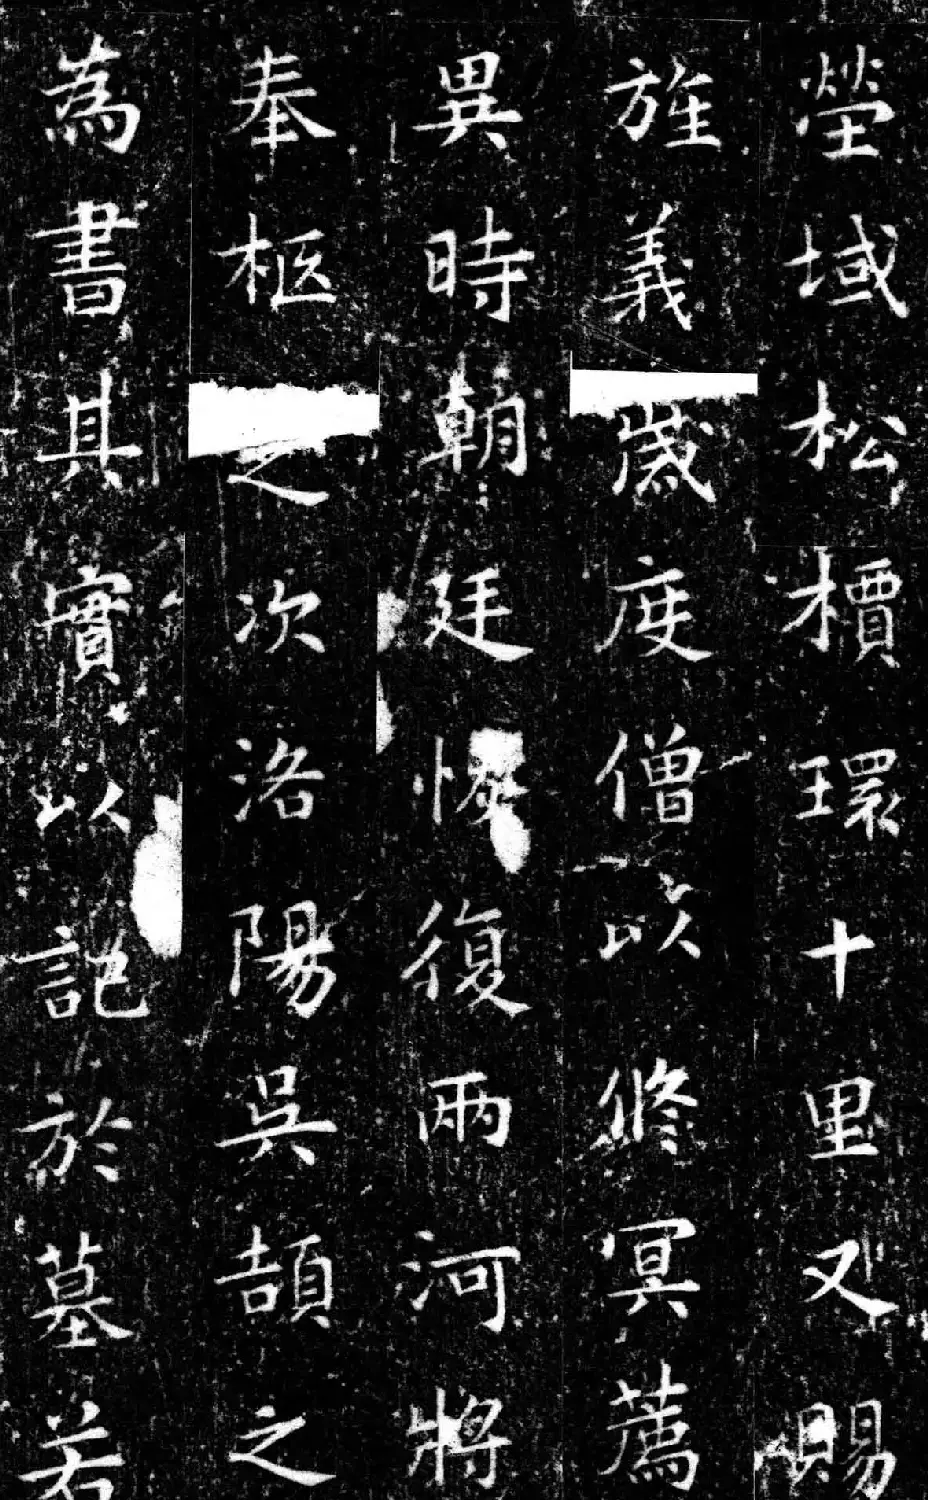 塋域松檟環十里又賜
旌義歲度僧以修冥薦
異時朝廷恢復兩河將
奉柩之次洛陽吳頡之
為書其實以記於墓若